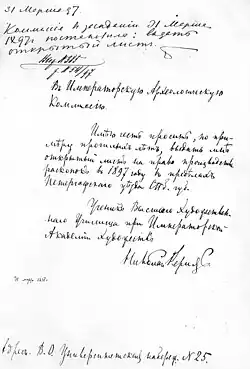 31 Марта 97.
Комиссія в заседании 31 Марта
1897 г. постановила: выдать
открытый листъ.
Въ Императорскую Археологическую
Коммиссію.
Имѣю честь просить, по при-
мѣру прошлыхъ лѣтъ, выдать мнѣ
открытый листъ на право производства
раскопокъ въ 1897 году въ предѣлахъ
Петергофскаго уѣзда СПб. губ.
Ученикъ Высшаго Художествен-
наго Училища при Императорской
Академіи Художествъ
Николай Рерихъ
Адрес. В. О. Университетская набереж. № 25.